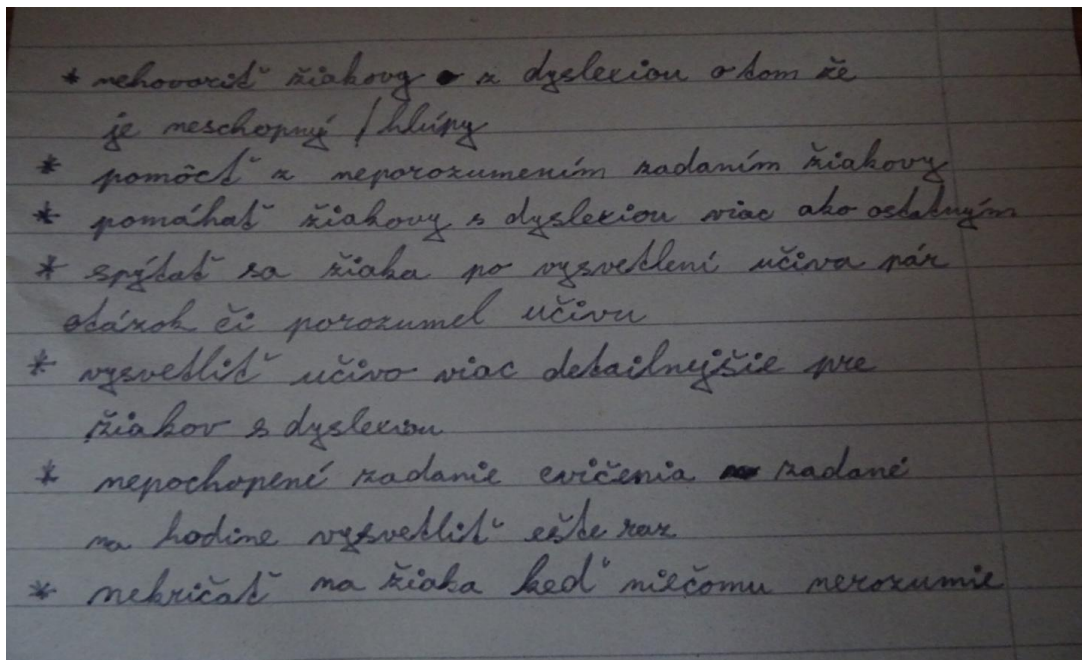 * nehovoriť žiakovy z dyslexiou o tom že
je neschopný / hlúpy
* pomôcť z neporozumením zadaním žiakovy
* pomáhať žiakovy s dyslexiou viac ako ostatným
* spýtať sa žiaka po vysvetlení učiva pár
otázok či porozumel učivu
* vysvetliť učivo viac detailnejšie pre
žiakov s dyslexiou
* nepochopené zadanie cvičenia zadané
na hodine vysvetliť ešte raz
* nekričať na žiaka keď niečomu nerozumie